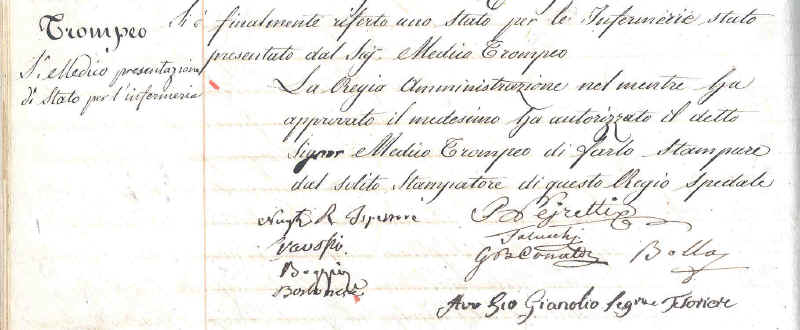 Trompeo
S.r Medico presentazione
di Stato per l'infermeria
Si è finalmente riferto uno Stato per le Infermerie stato
presentato dal Sig. Medico Trompeo
La Regia Amministrazione nel mentre ha
approvato il medesimo ha autorizzato il detto
Signor Medico Trompeo di farlo Stampare
dal solito Stampatore di questo Regio Spedale
Vavossi
Negretti
Bolla
Avv Gio Gianolio Seg.